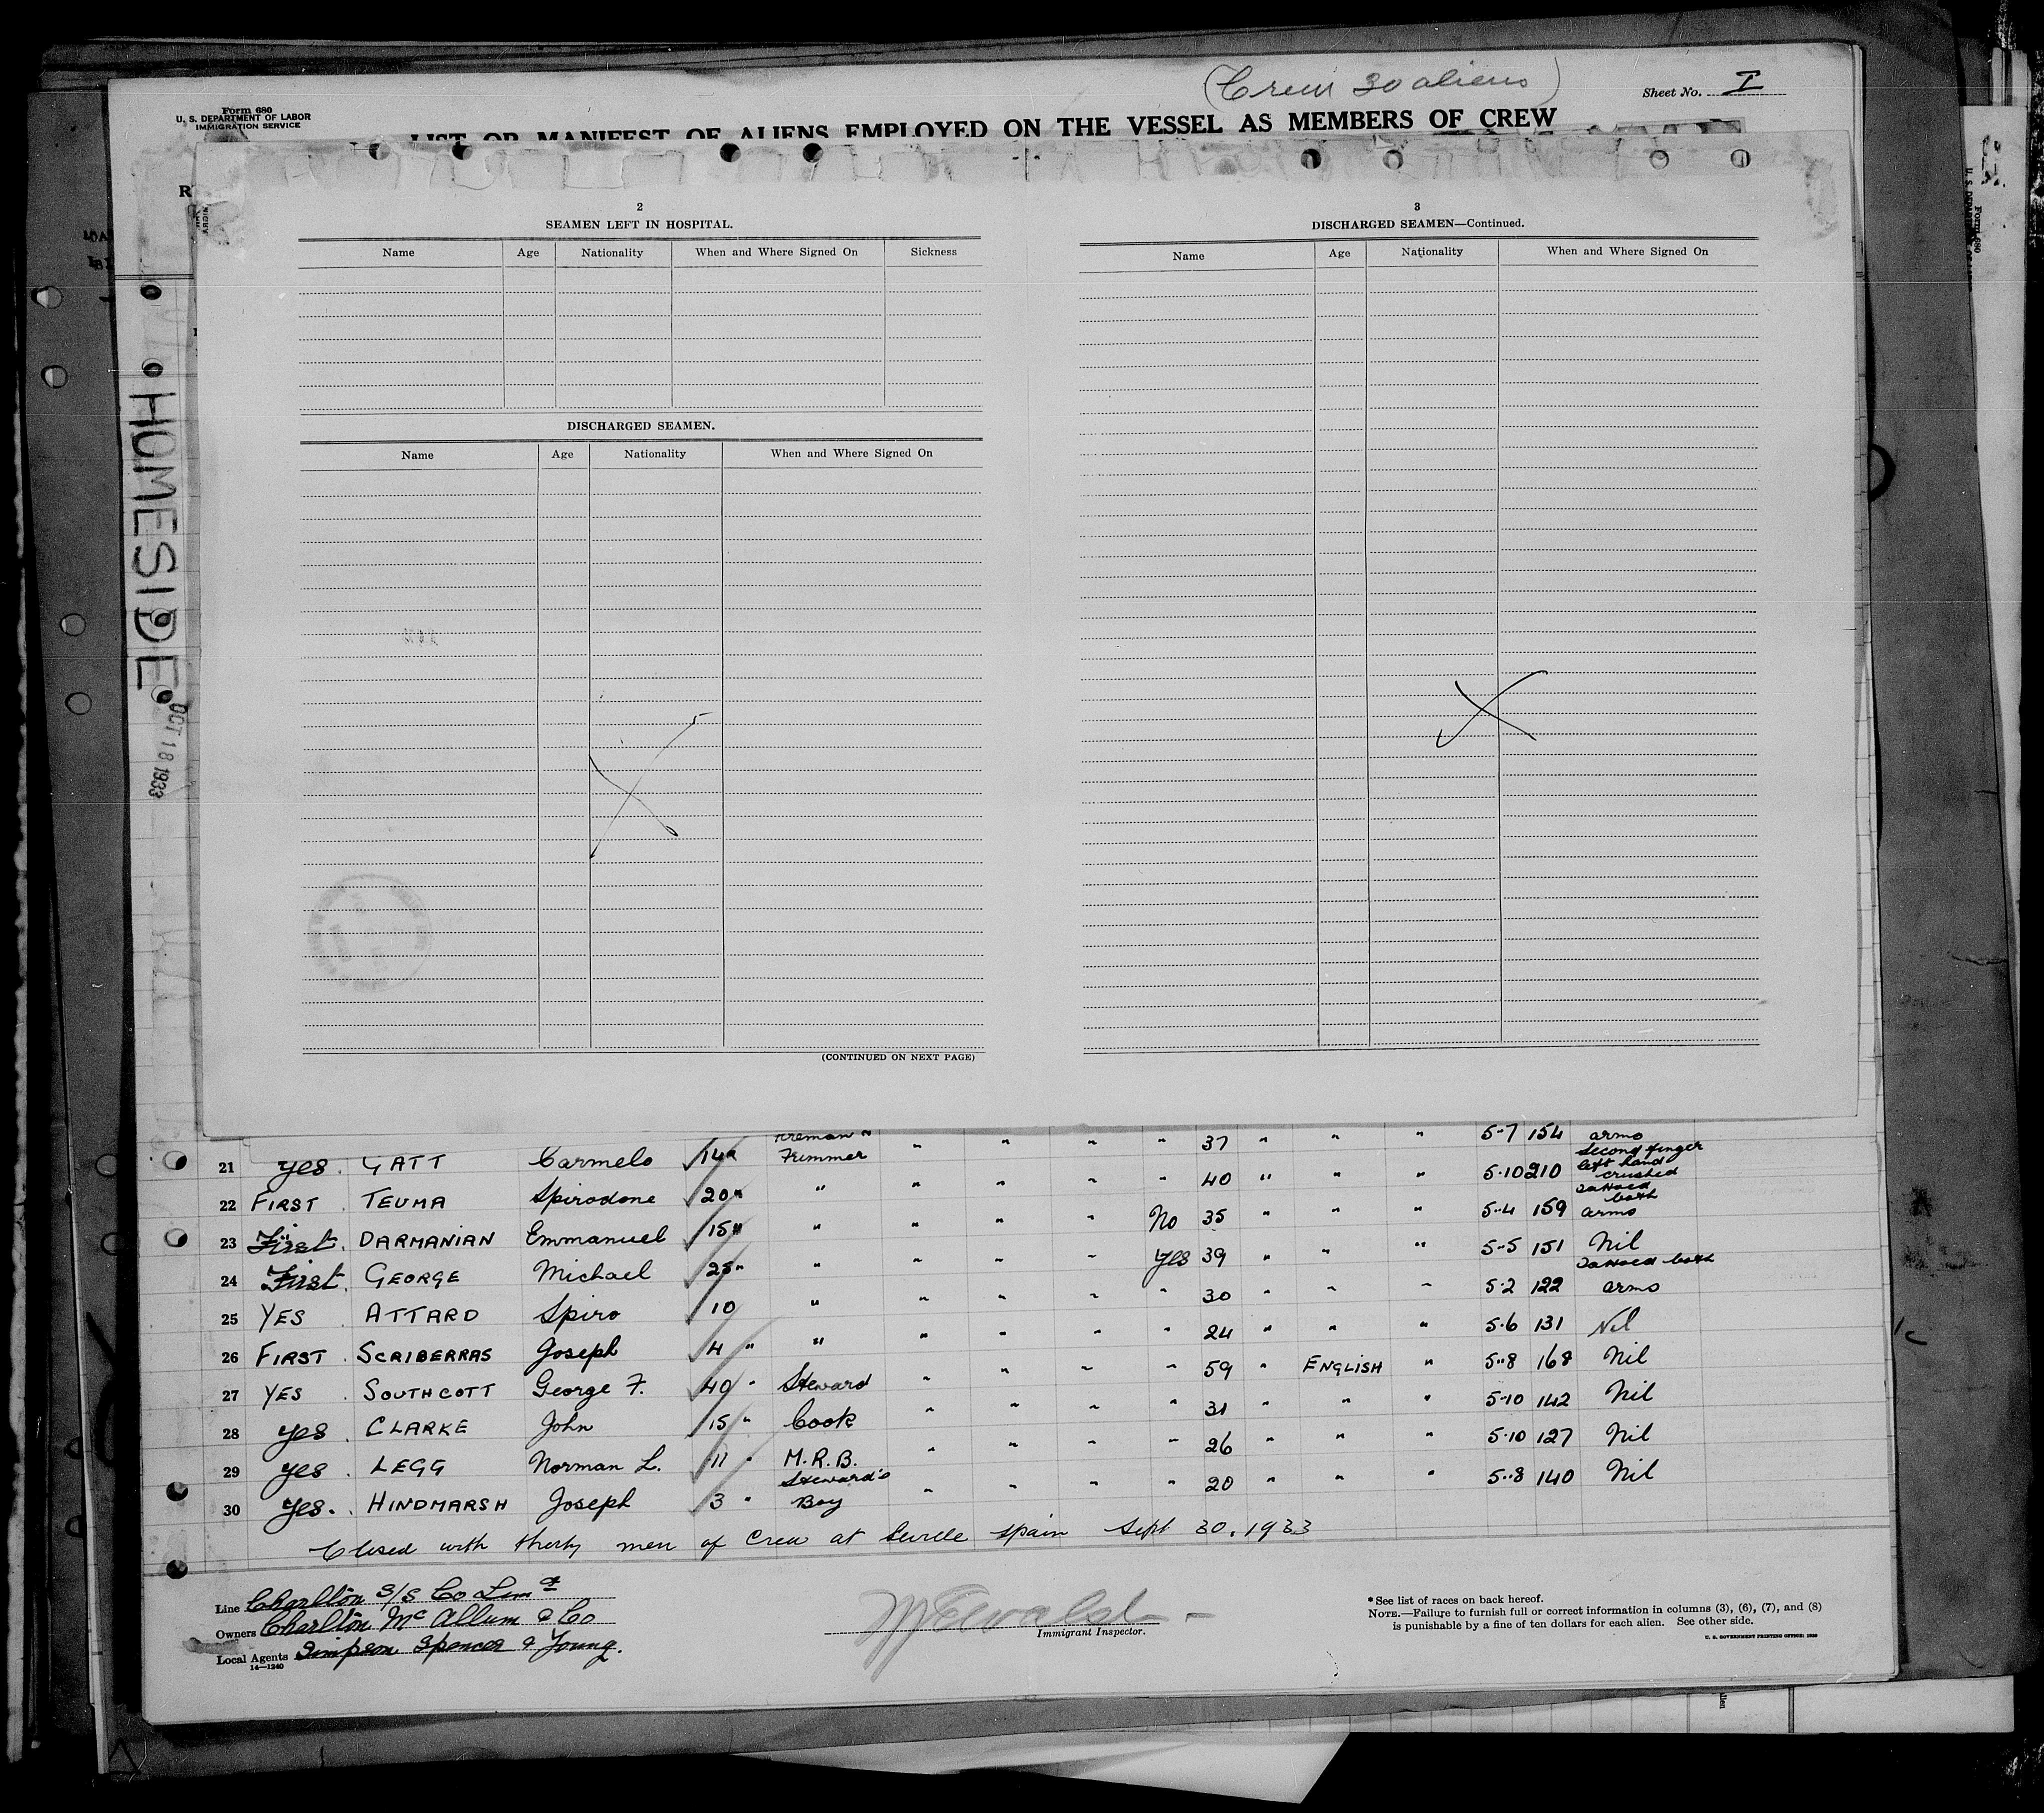 (Crew 30 aliens)
Form 680
U. S. DEPARTMENT OF LABOR
IMMIGRATION SERVICE
Sheet No. I
LIST OR MANIFEST OF ALIENS EMPLOYED ON THE VESSEL AS MEMBERS OF CREW
HOMESIDE
OCT 18 1933
2
SEAMEN LEFT IN HOSPITAL.
Name Age Nationality When and Where Signed On Sickness
DISCHARGED SEAMEN.
Name Age Nationality When and Where Signed On
(CONTINUED ON NEXT PAGE)
3
DISCHARGED SEAMEN—Continued.
Name Age Nationality When and Where Signed On
21 Yes. GATT Carmelo 14 " Fireman & Trimmer " " " " 37 " " " 5-7 154 arms
22 FIRST TEUMA Spirodone 20 " " " " " " 40 " " " 5-10 210 Second finger left hand crushed
23 First. DARMANIAN Emmanuel 15 " " " " " No 35 " " " 5-4 159 Tattoed both arms
24 First. GEORGE Michael 25 " " " " " Yes 39 " " " 5-5 151 Nil
25 YES ATTARD Spiro 10 " " " " " 30 " " " 5-2 122 Tattoed both arms
26 FIRST. SCRIBERRAS Joseph 4 " " " " " " 24 " " " 5-6 131 Nil
27 YES. SOUTHCOTT George F. 40 " Steward " " " " 59 " ENGLISH " 5-8 168 Nil
28 Yes. CLARKE John 15 " Cook " " " " 31 " " " 5-10 142 Nil
29 Yes. LEGG Norman L. 11 " M.R.B. " " " " 26 " " " 5-10 127 Nil
30 Yes. HINDMARSH Joseph 3 " Steward's Boy " " " " 20 " " " 5-8 140 Nil
Closed with thirty men of Crew at Spain Sept 30. 1933
Line Charlton S/S Co Limd
Owners Charlton McAllum & Co
Local Agents Simpson Spence & Young.
14—1240
Immigrant Inspector.
* See list of races on back hereof.
NOTE.—Failure to furnish full or correct information in columns (3), (6), (7), and (8)
is punishable by a fine of ten dollars for each alien. See other side.
U. S. GOVERNMENT PRINTING OFFICE: